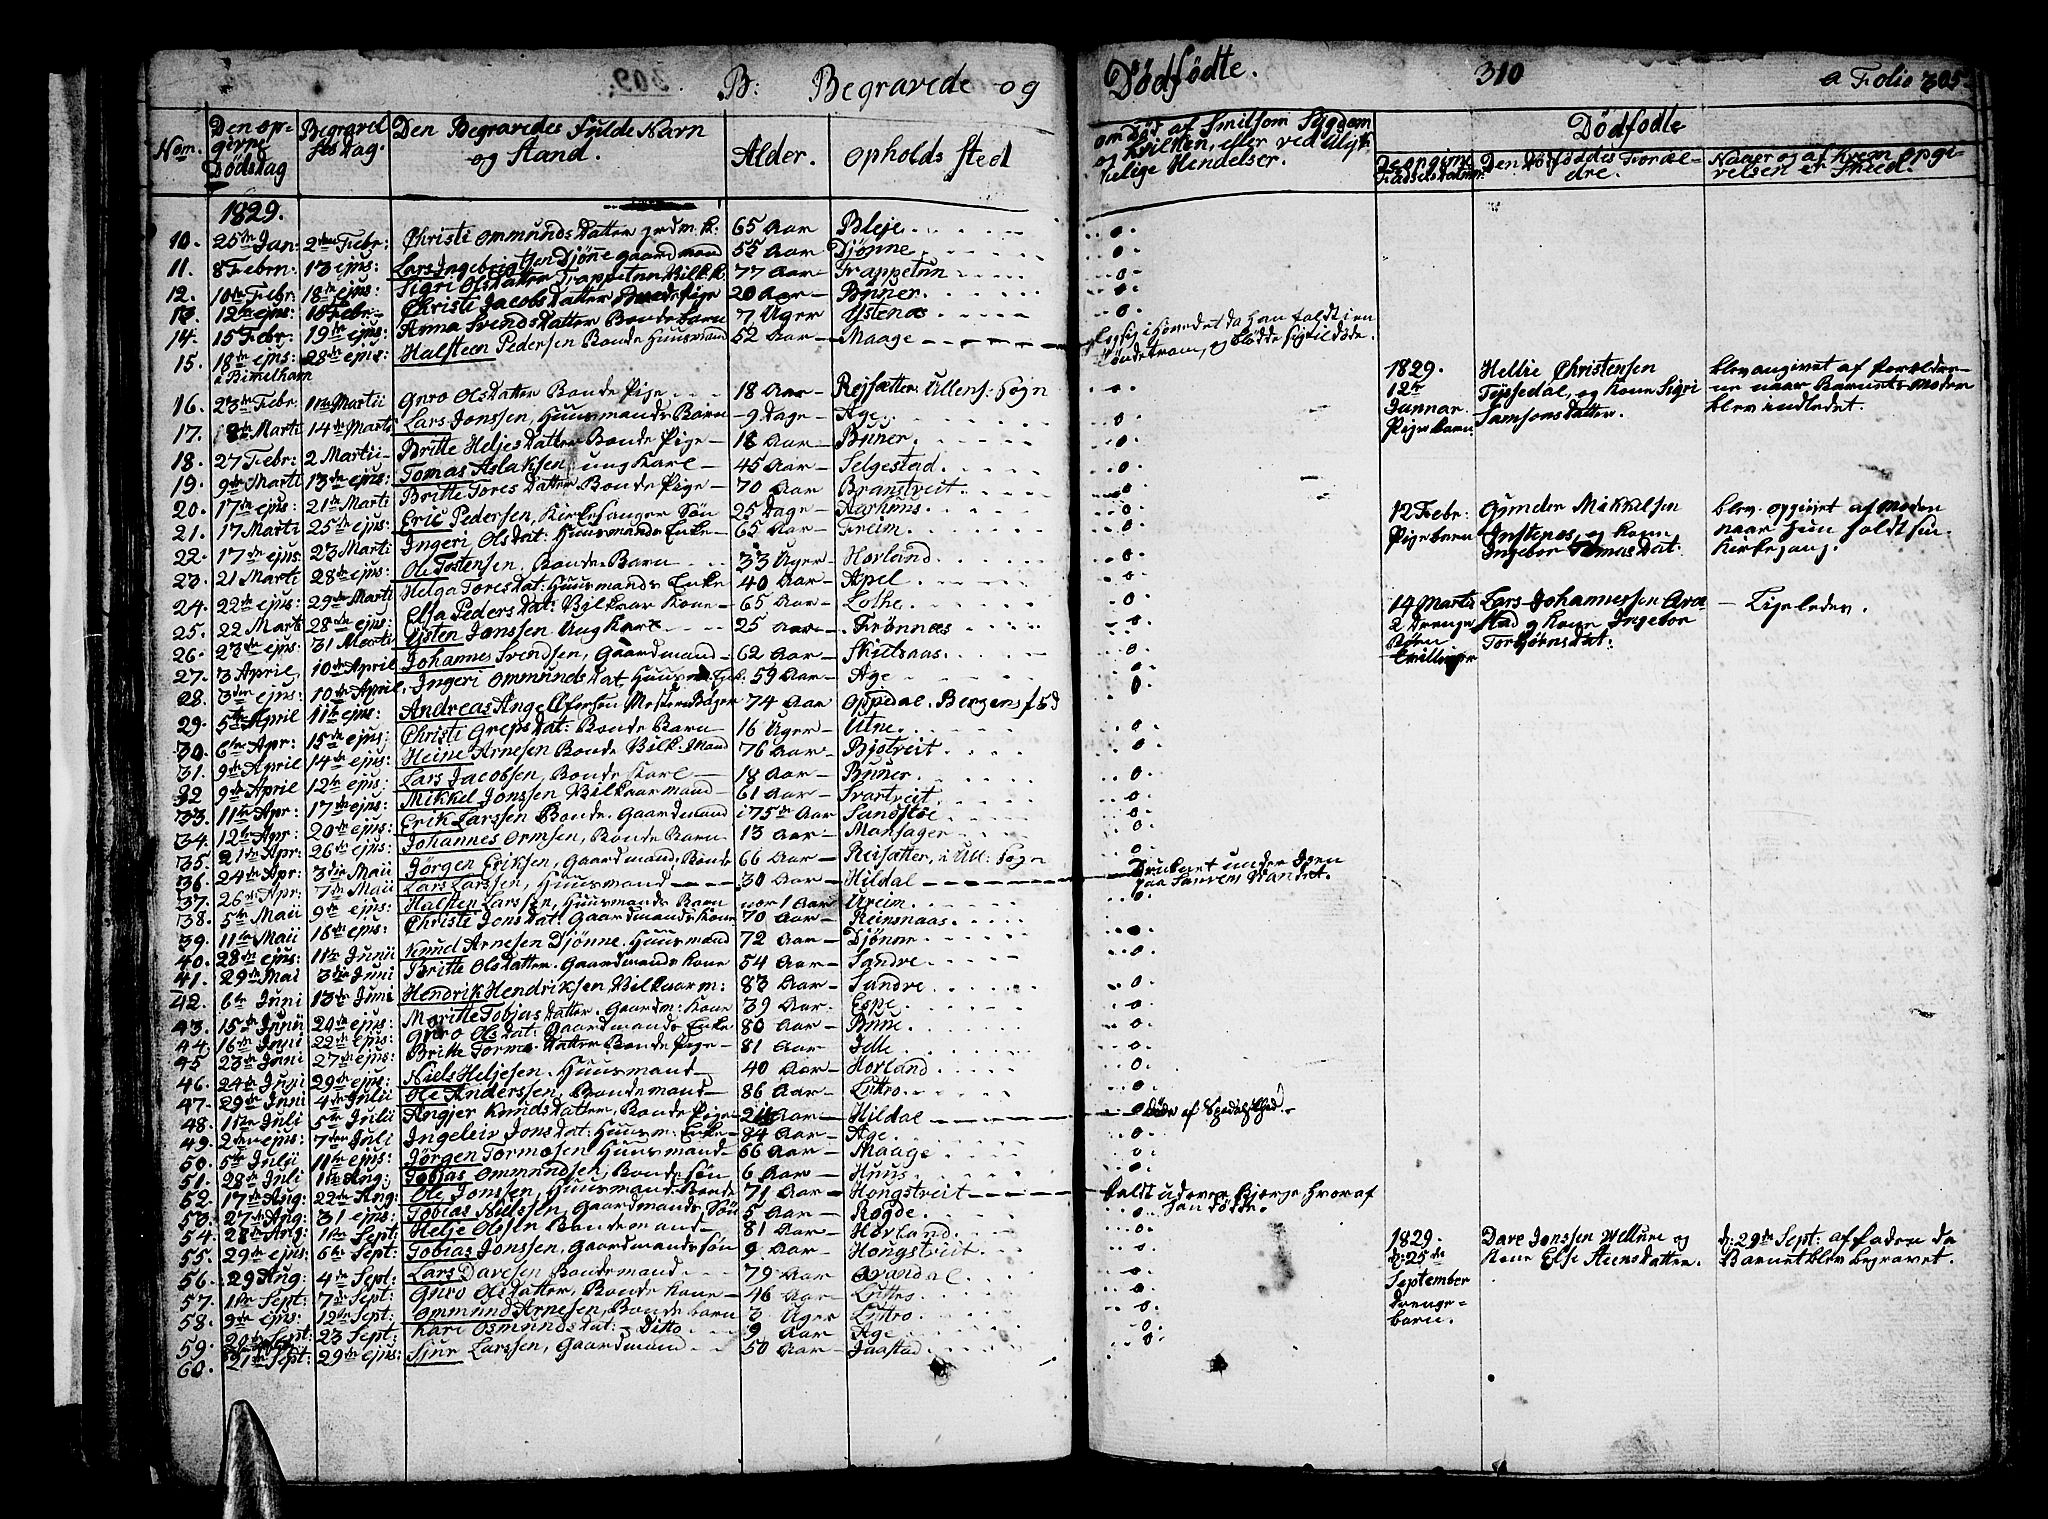 B: Begravede og Dödfödte. 310 a Folio 305.
Nom. Den opgivne Dödsdag Begravelses Dag. Den Begravedes Fulde Navn og Stand. Alder. Opholds sted
om Död af Smitsom Sygdom og hvilken, eller ved Ulykkelige Hendelser.
Dödfödte
Den Dödföddes Foræl-dre. Naar og af hvem opgi-velsen er Skeed.
1829.
10. 25de Jan: 2den Febr: Christi Ommunds Datter 65 Aar Bleje
11. 8 Febru. 13 ejus: Lars Ingebrigtsen Djöne gaardmand 55 Aar Djönne
12. 10de Febr 18de ejus: Sigri Olsdatter Trappetun Vilk.k. 77 Aar Trappetun
13. 12te ejus: Febr Christi Jacobs Datter Bonde Pige 20 Aar Büuer
14. 15 Febr: 19de ejus: Anna Svends Datter Bondebarn 7 Uger Ystenæs
15. 18de ejus: 28de ejus: Halsteen Pedersen Bonde Huusmand 52 Aar Maage
16. 23de Febr 1te Martii Guro Ols Datter Bonde Pige 18 Aar Rejsæter Ullens: Sogn
17. 8de Marti 14de Marti Lars Jonssen, Huusmands Barn 9 Dage Age
18. 27 Febr: 2 Martii Britte Heljes Datter Bonde Pige 18 Aar Büuer
19. 9de Marti 13de ejus: Tomas Aslaksen ung Karl 45 Aar Selgestad
20. 17de ejus: 21de Marti Britte Tores Datter Bonde Pige 70 Aar Branstveit
21. 17 Marti 25de ejus: Eric Pedersen, Kirkesanger Sön 25 Dage Aarhuus
22. 17de ejus 23 Marti Ingeri Olsdat: Huusmands Enke 65 Aar Freim
23. 21 Marti 28de ejus: Ole Tostensen, Bonde Barn 33 Uger Horland
24. 22de ejus: 29de Marti Helga Toresdat: Huusmands Enke 40 Aar Apel
25. 22 Marti 28de ejus: Elsa Peders dat: Vilkaar Kone 65 Aar Lothe
26. 23de ejus: 31 Marti Ysten Jonssen Ung Karl 25 Aar Frönnæs
27. 3 April 10de April Johannes Svendsen, Gaardmand 62 Aar Skielnaas
28. 3de ejus: 10de April. Ingeri Ommundsdat. Huusm. Enk. 59 Aar Age
29. 5te April 11te ejus: Andreas 74 Aar Oppdal. Bergens
30. 6te Apr: 15de ejus: Christi Greps Dat: Bonde Barn 16 Uger Utne
31. 9de April 14de ejus: Heine Arnesen Bonde Vilk. Mand 76 Aar Bjotveit
32 9de April 12te ejus: Lars Jacobsen, Bonde Karl 18 Aar Büuer
33. 11te Apr: 17de ejus: Mikkel Jonssen Vilkaarmand 61 Aar Svartveit
34. 12te Apr: 20de ejus: Erik Larssen Bonde. Gaardmand i 75de Aar Sandstöe
35. 21de Apr: 26de ejus: Johannes Ormsen, Bonde Barn 13 Aar Mansager
36. 24de Apr: 3die Maii Jörgen Eriksen, Gaardmand. Bonde 66 Aar Reisæter, i Ull: Sogn
37. 26de Apr. 7de Maii Lars Larssen, Huusmand 30 Aar Hildal
38. 5te Maii 9de ejus: Halsten Larssen, Huusmands Barn 1 Aar Ureim
39. 11te Maii 18de ejus: Christi Jonsdat: Gaardmands Kone 70 Aar Reinsnaas
40. 28de ejus: 11te Junii Knud Arnesen Djönne. Huusmand 72 Aar Djönne
41. 29de Mai 3die Juni Britte Olsdatter. Gaardmands Kone 54 Aar Sandve
42. 6te Juni 13de Juni Hendrik Hendriksen Vilkaarm: 83 Aar Sandve
43. 15de Junii 20de ejus: Maritte Tobjas Datter. Gaardm: Kone 39 Aar Espe
44. 16de Juni 22de ejus: Guro Ols Dat: Gaardmands Enke 80 Aar Büue
45 23de Juni 27de ejus: Britte Tormo Datter Bonde Pige 81 Aar Jelle
46. 24de Juni 29de ejus: Niels Heljesen. Huusmand 40 Aar Horland
47. 29de Juni 4de Julii Ole Anderssen, Bondemand 86 Aar Luttro
48. 1te Juli 5te Julii Angjer Knuds Datter, Bonde Pige Aar Hildal
49. 2den ejus: 7de Juli Ingeleiv Jonsdat: Huusm: Enke 84 Aar Age
50. 5te Julii 11te ejus: Jörgen Tormosen Huusmand 66 Aar Maage
51. 28de Juli 1te Aug: Tobias Ommundsen Bonde sön 6 Aar Huus
52. 17de Aug: 22de Aug: Ole Jonssen, Huusmand. Bonde 71 Aar Hougstveit
53. 27de Aug: 31 ejus: Tobias Nilssen, Gaardmands Sön 5 Aar Rogde
54. 28de Aug: 1te Sept: Helje Olssen Bondemand 81 Aar Horland
55. 29de ejus: 6te Sept: Tobias Jonssen, Gaardmands sön 9 Aar Hougstveit
56. 29 Aug: 4de Sept: Lars Davesen Bondemand 79 Aar Arandal
57. 1te Sept: 7de Sept: Guro Olsdatter, Bonde Kone 46 Aar Luttro
58. 9de ejus: 12te Sept: Ommund Arnesen, Bonde barn 3 Uger Luttro
59. 20de Sept: 23 Sept: Kari Osmunds dat: Ditto 9 Aar Age
60. 21de Sept: 29de ejus: Sjur Larssen, Gaardmand 50 Aar Jaastad
Slog sig i Hovedet da han faldt i en
og blödde sig til döde.
under Isen
paa Vandet.
döde af Spedalskhed.
faldt udover Bjerge, hvoraf
han dödde.
1829. 12te Januar. Pigebarn: Hellie Christensen Tössedal, og Kone Sigri Samsons datter. blev angivet af Forældrene naar Barnets Moder blev indledet.
12 Febr: Pigebarn Gunder Mikkelsen og Kone Ingebor Tomasdat: blev opgivet af Moderen naar hun holdt sin Kirkegang.
14 Martii 2 Drenge Börn Tvillinger Lars Johannessen Ara stad og Kone Ingebor Torbjörnsdat: – Ligeledes.
1829. d: 25de September drenge-barn. Dave Jonssen Velure og Kone Else Steensdatter. d: 29de Sept: af Faderen da Barnet blev begravet.